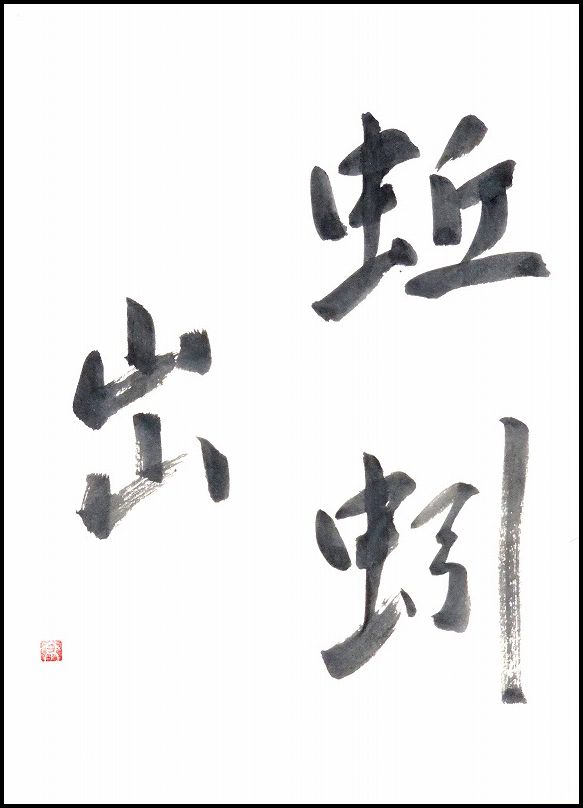 蚯蚓
出